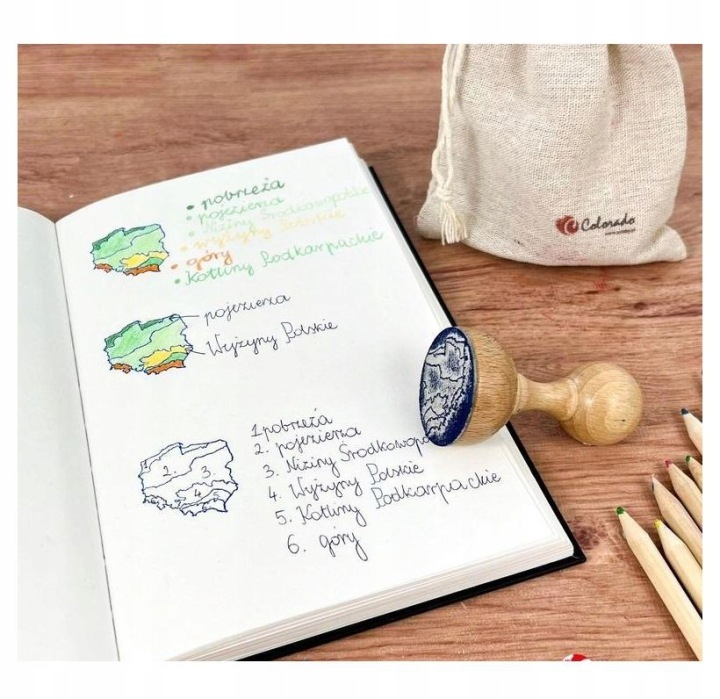 • pobrzeża
• pojezierza
• Niziny Środkowopolskie
• wyżyny Polskie
• góry
• Kotliny Podkarpackie
pojezierza
Wyżyny Polskie
2. 3.
4.
1 pobrzeża
2. pojezierza
3. Niziny Środkowopo
4. Wyżyny Polskie
5. Kotliny Podkarpackie
6. góry
Colorado